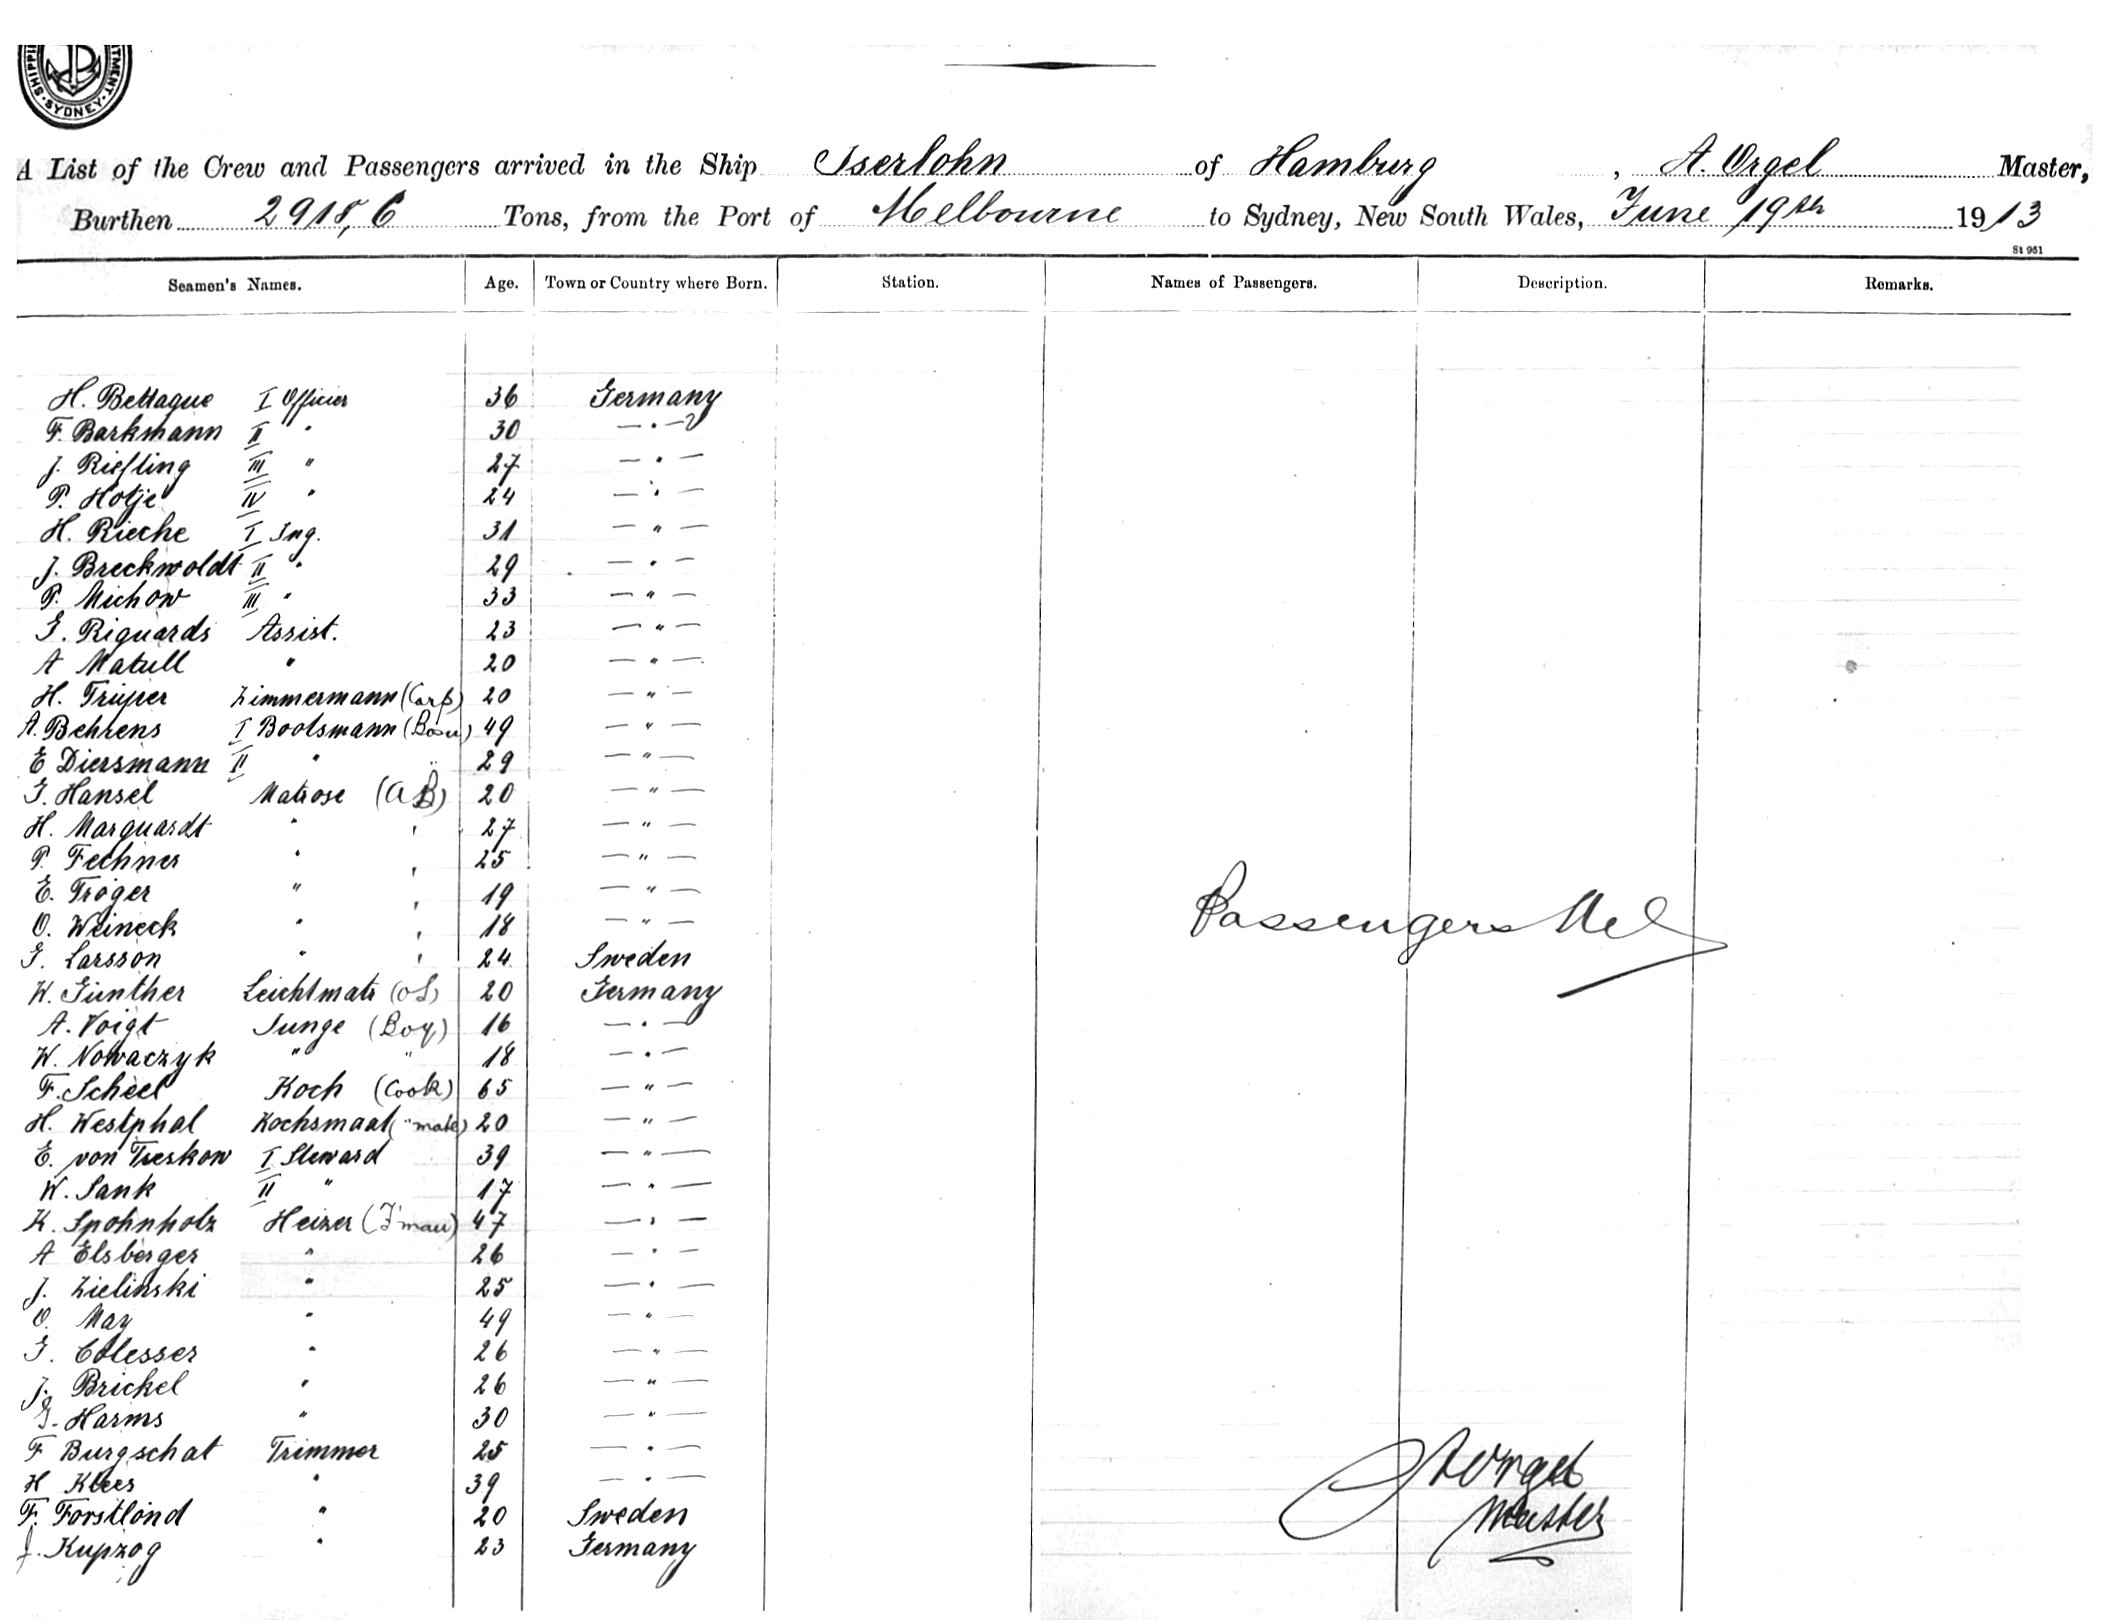 SHIPPI TMENT SYDNEY
A List of the Crew and Passengers arrived in the Ship Iserlohn of Hamburg, A. Orgel Master,
Burthen 2918,6 Tons, from the Port of Melbourne to Sydney, New South Wales, June 19th 1913
St 951
Seamen's Names. Age. Town or Country where Born. Station. Names of Passengers. Description. Remarks.
H. Bettaque I Officier 36 Germany
F. Barkmann II " 30 — " —
J. Riefling III " 27 — " —
P. Hotje IV " 24 — " —
H. Rieche I Ing. 31 — " —
J. Breckwoldt II " 29 — " —
P. Michow III " 33 — " —
G. Riguards Assist. 23 — " —
A Matull " 20 — " —
H. Trüper Zimmermann (Carp) 20 — " —
A. Behrens I Bootsmann (Bosn) 49 — " —
E Diersmann II " " 29 — " —
G. Hansel Matrose (AB) 20 — " —
H. Marguardt " " 27 — " —
P. Fechner " " 25 — " —
E. Tröger " " 19 — " —
O. Weineck " " 18 — " —
G. Larsson " " 24 Sweden
W. Günther Leichtmatr (OS) 20 Germany
A. Voigt Junge (Boy) 16 — " —
W. Nowaczyk " " 18 — " —
F. Scheel Koch (Cook) 65 — " —
H. Westphal Kochsmaat (" mate) 20 — " —
E. von Treskow I Steward 39 — " —
W. Sank II " 17 — " —
K. Spohnholz Heizer (F'man) 47 — " —
A Elsberger " 26 — " —
J. Zielinski " 25 — " —
O. May " 49 — " —
G. " 26 — " —
J. Brickel " 26 — " —
G. Harms " 30 — " —
F Burgschat Trimmer 25 — " —
H Klees " 39 — " —
F. Forstlönd " 20 Sweden
J. Kupzog " 23 Germany
Passengers Nel
A Orgel
Master